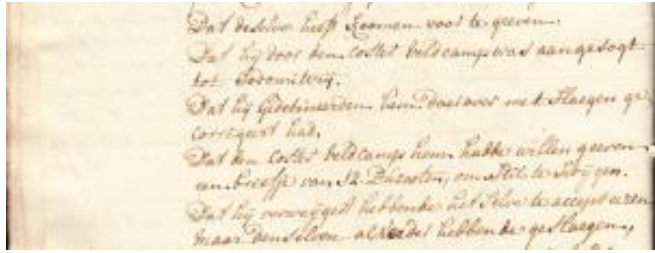 Dat deselve heeft koomen voor te geeven.
Dat hij door den Coster Veldcamp was aangesogt
tot Sodomiterij.
Dat hij Gedetineerden hem daer over met slaegen ge
corrigeert had.
Dat den Coster Veldcamp hem hadde willen geeven
een briefje van 12 Ducaten, om stil te swijgen.
Dat hij verweijgert hebbende het selve te accepteren
maar denselven alreedes hebbende geslaegen,